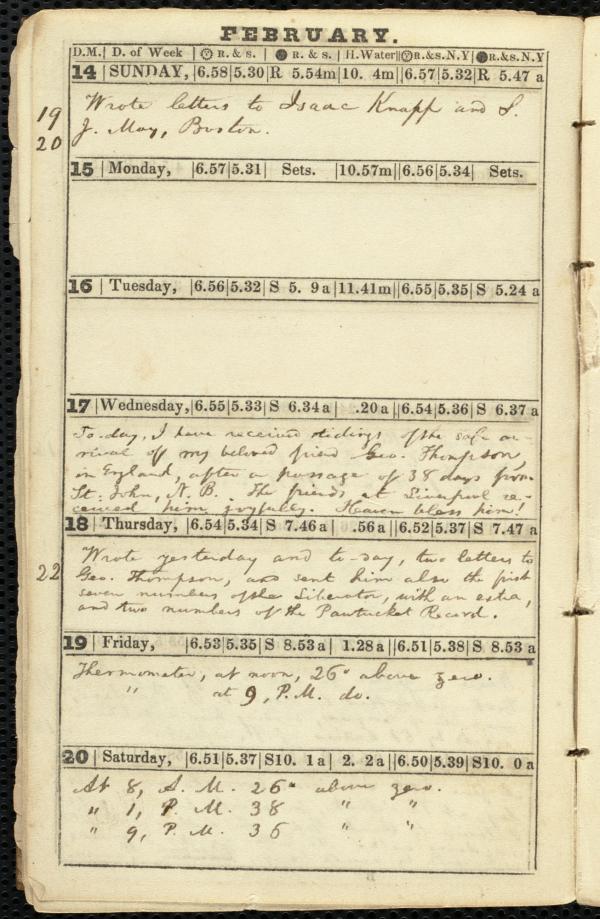 FEBRUARY.
D.M. | D. of Week | R. & s. | R. & s. | H. Water || R.&s.N.Y | R.&s.N.Y
14 | SUNDAY, | 6.58 | 5.30 | R 5.54m | 10. 4m || 6.57 | 5.32 | R 5.47 a
19 Wrote letters to Isaac Knapp and S.
20 J. May, Boston.
15 | Monday, | 6.57 | 5.31 | Sets. | 10.57m || 6.56 | 5.34 | Sets.
16 | Tuesday, | 6.56 | 5.32 | S 5. 9 a | 11.41m || 6.55 | 5.35 | S 5.24 a
17 | Wednesday, | 6.55 | 5.33 | S 6.34 a | .20 a || 6.54 | 5.36 | S 6.37 a
To-day, I have received tidings of the safe ar-
rival of my beloved friend Geo. Thompson,
in England, after a passage of 38 days from
St. John, N. B. The friends at Liverpool re-
ceived him joyfully. Heaven bless him!
18 | Thursday, | 6.54 | 5.34 | S 7.46 a | .56 a || 6.52 | 5.37 | S 7.47 a
Wrote yesterday and to-day, two letters to
22 Geo. Thompson, and sent him also the first
seven numbers of the Liberator, with an extra,
and two numbers of the Pawtucket Record.
19 | Friday, | 6.53 | 5.35 | S 8.53 a | 1.28 a || 6.51 | 5.38 | S 8.53 a
Thermometer, at noon, 26° above zero.
" at 9, P.M. do.
20 | Saturday, | 6.51 | 5.37 | S10. 1 a | 2. 2 a || 6.50 | 5.39 | S10. 0 a
At 8, A. M. 26° above zero.
" 1, P. M. 38 " "
" 9, P. M. 36 " "